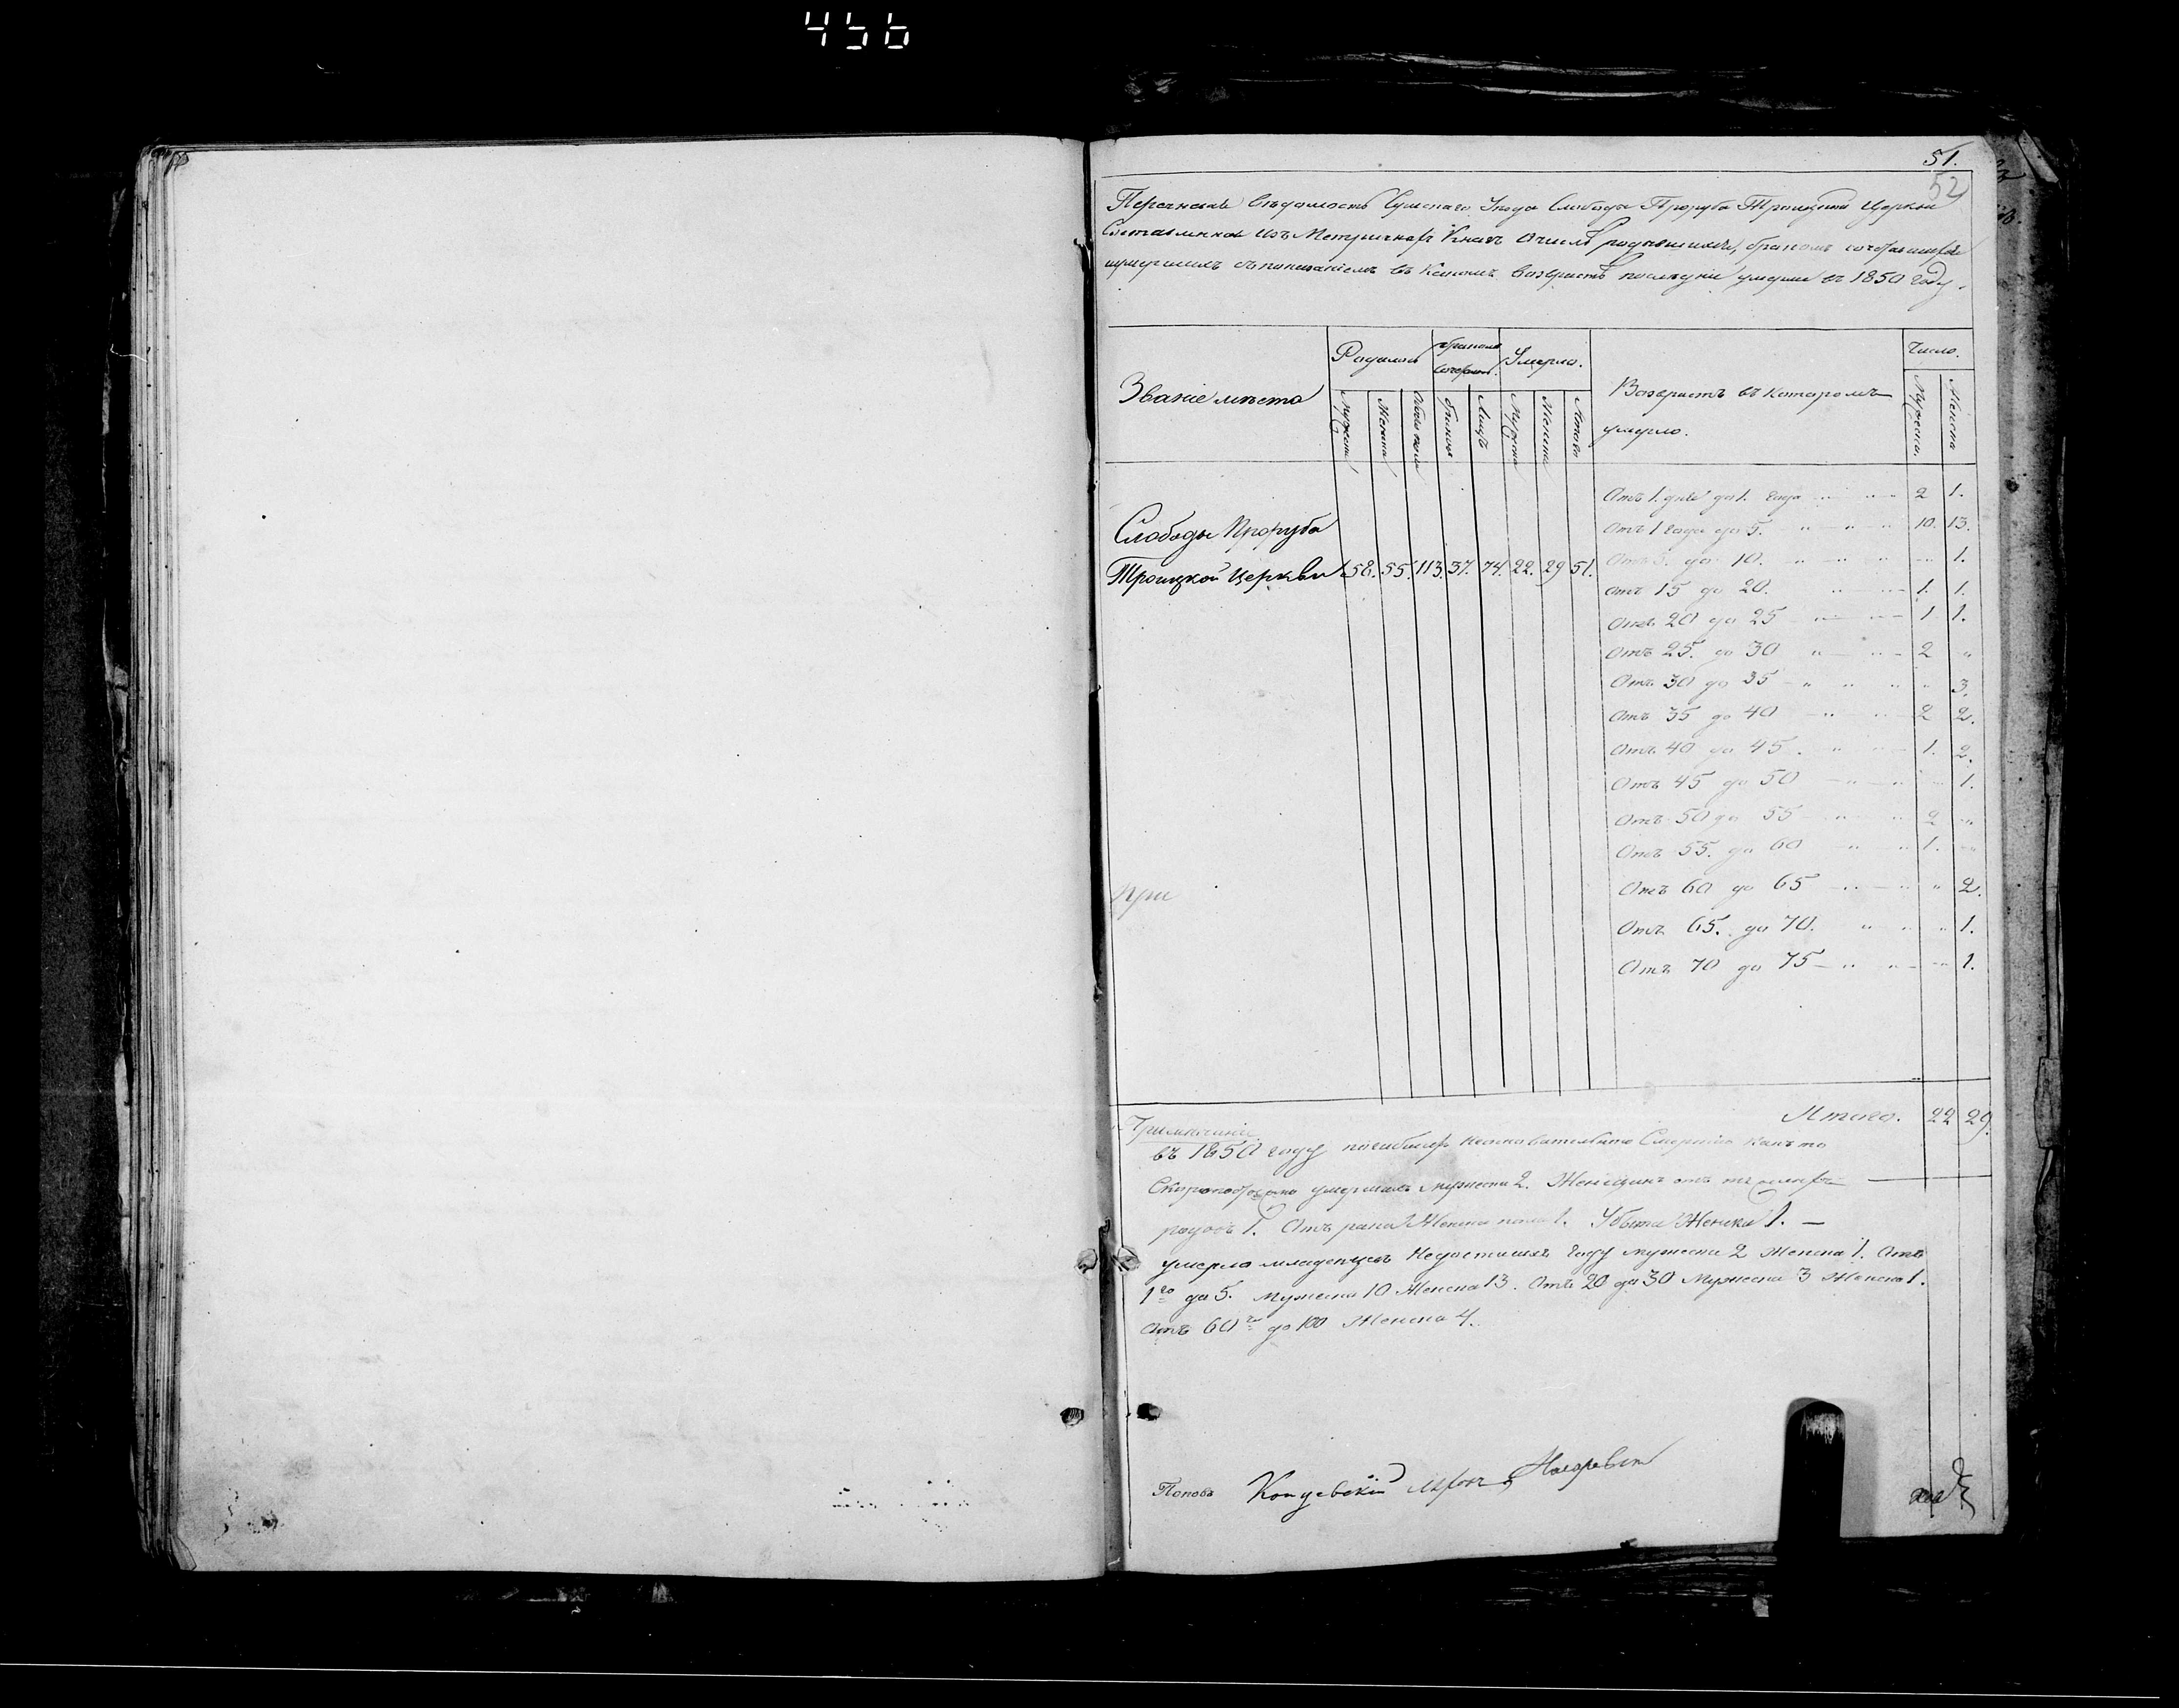 456
51.
52
Перечневая Ведомость Сумскаго Уезда Слободы Проруба Троицкой Церкви
Составленная изъ Метрическихъ Книгъ о числе родившихся, бракомъ сочетавшихся
и умершихъ съ показаніемъ въ какомъ возрасте последніе умерли въ 1850 году.
Званіе места
Родилось
бракомъ сочетал.
Умерло.
Возрастъ въ которомъ умерло.
Число.
Мужеска Женска Обоего пола браковъ Лицъ Мужеска Женска Итого Мужеска Женска
Слободы Проруба
Троицкой Церкви 58. 55. 113. 37. 74. 22. 29 51.
Отъ 1. дня до 1. года 2 1.
Отъ 1 года до 5. 10. 13.
Отъ 5. до 10. " 1.
Отъ 15 до 20. 1. 1.
Отъ 20 до 25 1 1.
Отъ 25. до 30 2 "
Отъ 30 до 35 " 3.
Отъ 35 до 40 2 2.
Отъ 40 до 45. 1. 2.
Отъ 45 до 50 " 1.
Отъ 50 до 55 2 "
Отъ 55. до 60 1. "
при
Отъ 60 до 65 " 2.
Отъ 65. до 70. " 1.
Отъ 70 до 75 " 1.
Итого. 22 29.
Примечаніе
въ 1850 году погибшихъ неестественною Смертію какъ то
Скоропостижно умершихъ мужеска 2. Женщинъ отъ
родовъ 1. Отъ Женска пола 1. Женска 1. —
умерло младенцевъ Недостигшихъ году мужеска 2 Женска 1. Отъ
1го до 5. Мужеска 10 Женска 13. Отъ 20 до 30 Мужеска 3 Женска 1.
Отъ 60 до 100 Женска 4.